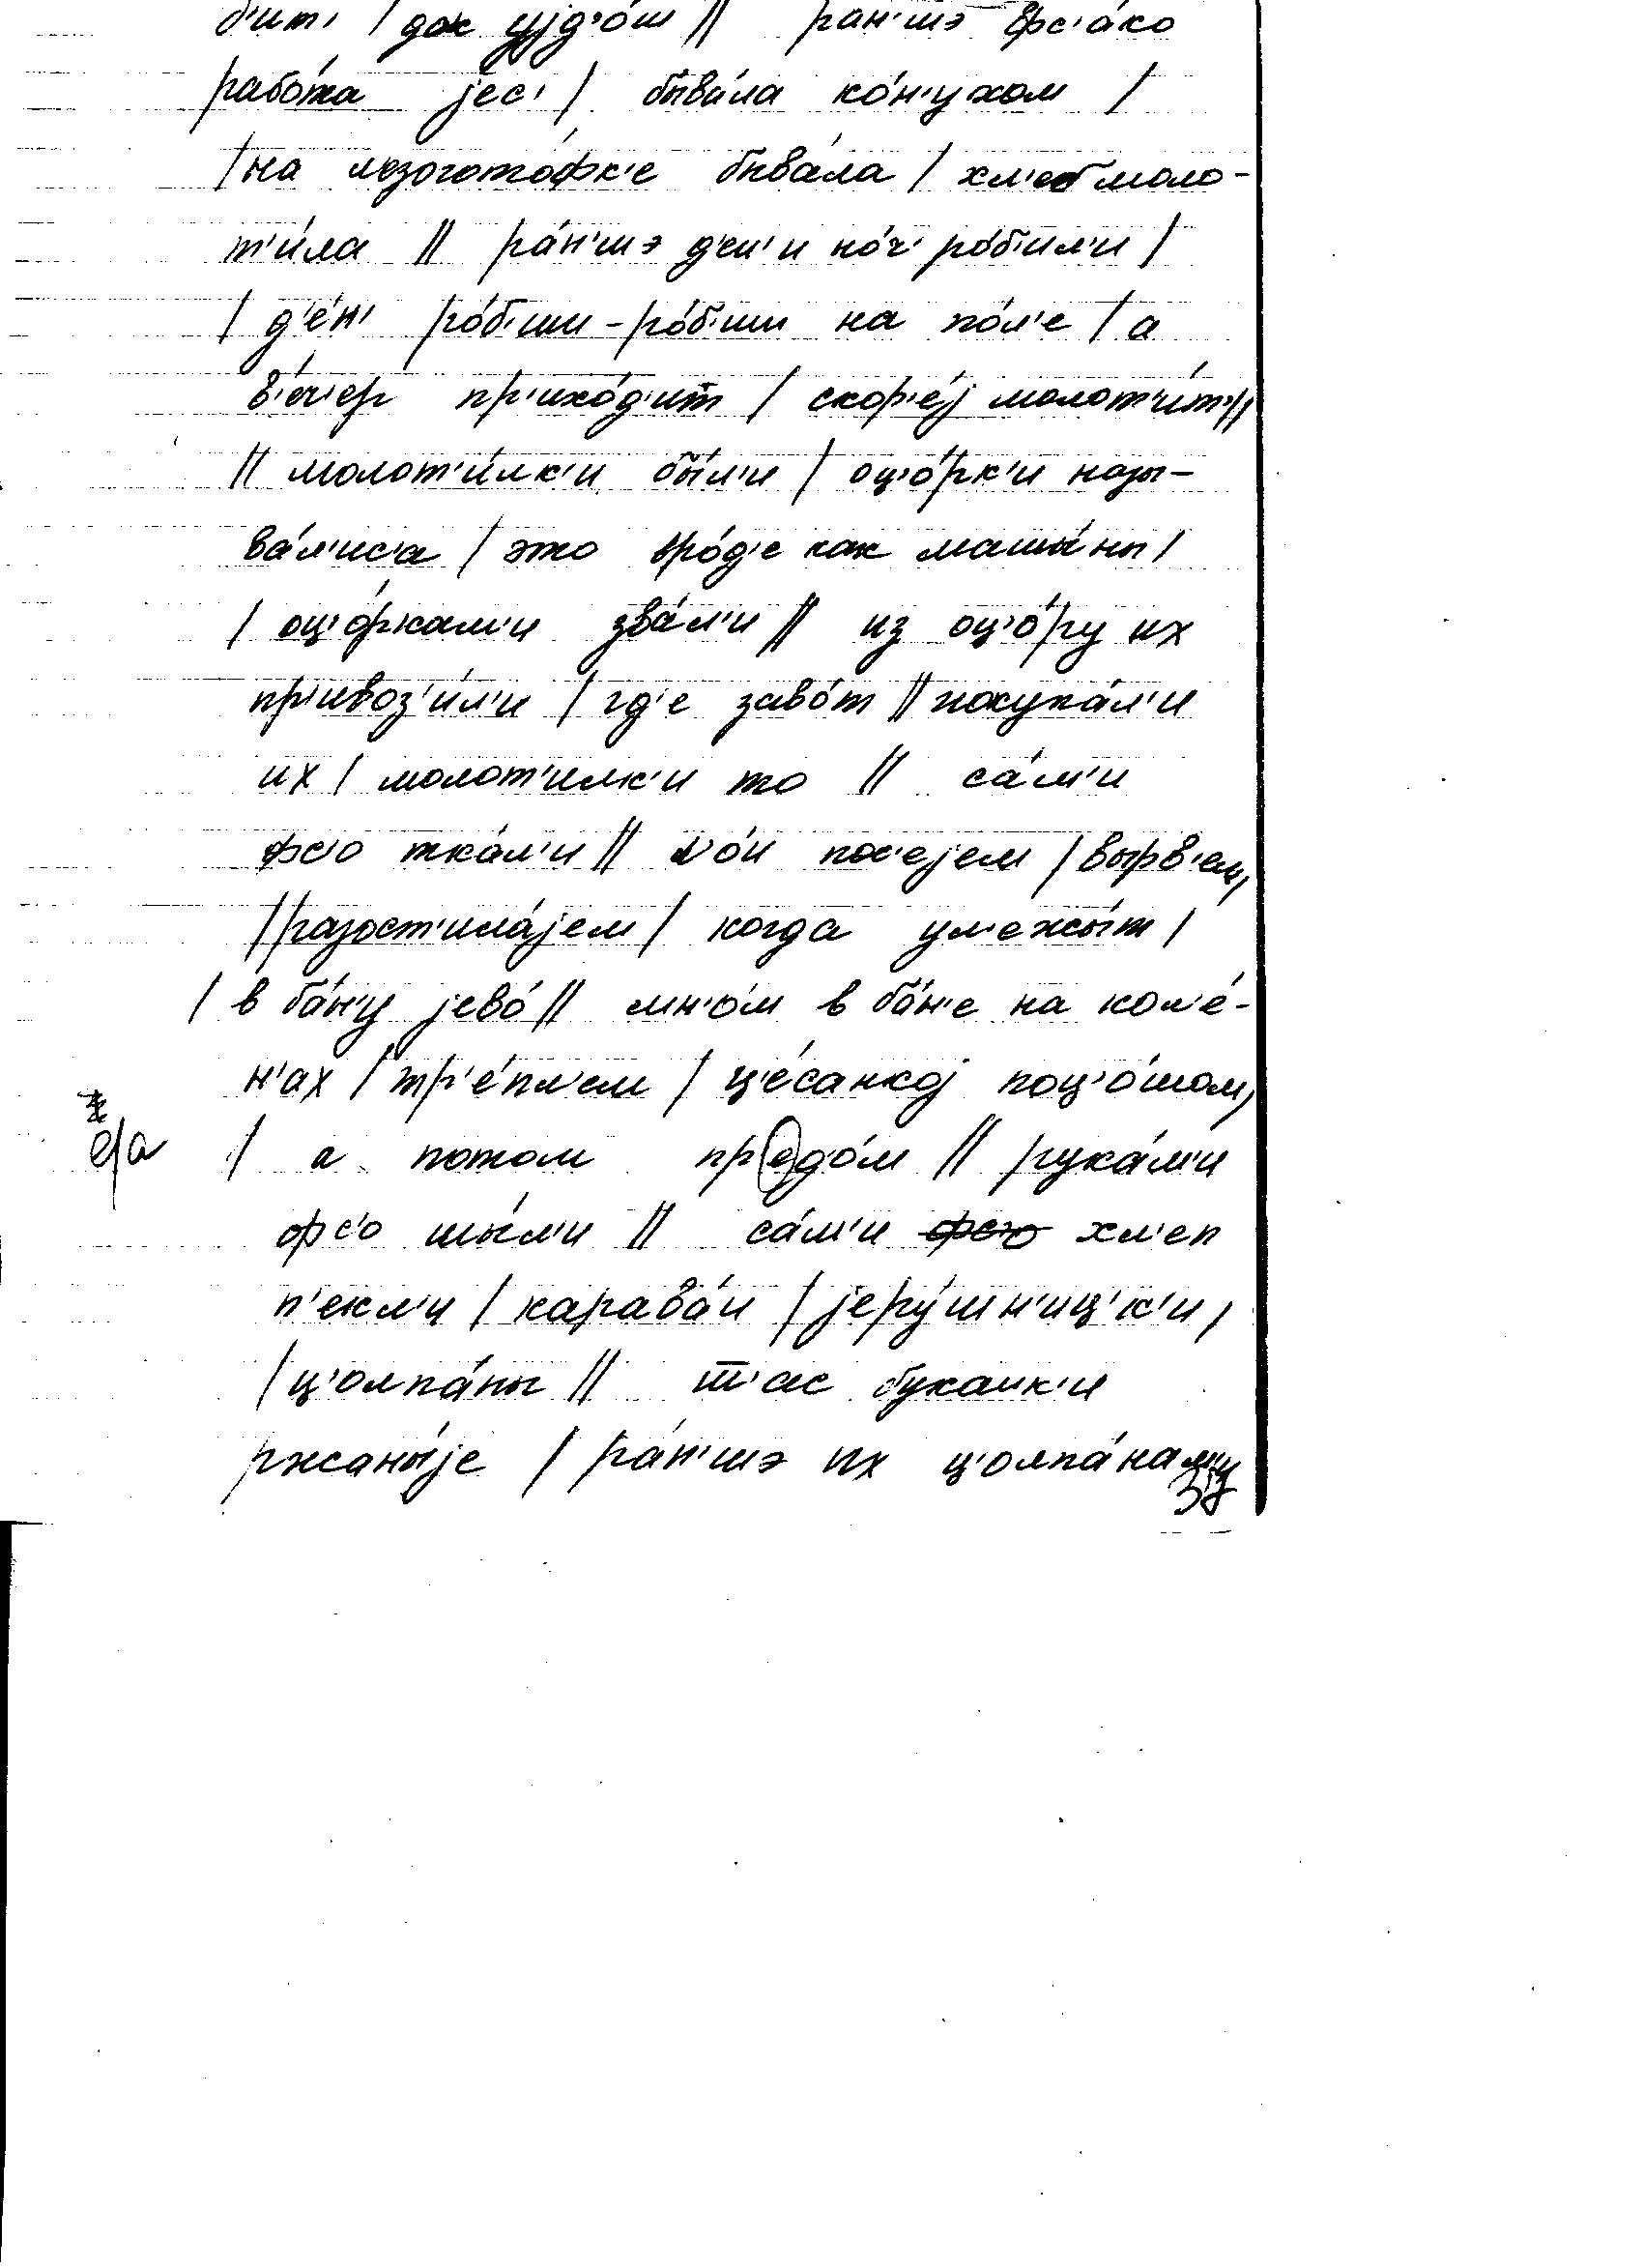 б'ит' / дак уjд'о́ш // ран'шэ фс'а́ко
рабо́та jес' / быва́ла ко́н'ухом /
/ на л'езоготофк'е быва́ла / хл'еб моло-
т'и́ла // ра́н'шэ д'ен' и но́ч' ро́б'ил'и /
/ д'е́н' ро́б'иш-ро́б'иш на по́л'е / а
в'е́ч'ер пр'ихо́д'ит / скор'е́j молот'и́т' //
// молот'и́лк'и бы́л'и / оц'о́рк'и назы-
ва́л'ис'а / это вро́д'е как машы́ны /
/ оц'о́ркам'и зва́л'и // из оц'о́ру их
пр'ивоз'и́л'и / гд'е заво́т // покупа́л'и
их / молот'илк'и то // са́м'и
фс'о тка́л'и // л'о́н пос'еjем / вырв'ем,
/ разост'ила́jем / когда ул'ежы́т /
/ в ба́н'у jево́ // мн'о́м в ба́н'е на кол'е́-
н'ах / тр'е́пл'ем / ц'е́санкоj поц'о́шом,
е/а / а потом пр'едо́м // рука́м'и
фс'о шы́л'и // са́м'и хл'еп
п'екл'и / карава́и / jеру́шн'иц'к'и,
/ ц'олпа́ны // т'ас буханк'и
ржаны́jе / ра́н'шэ их ц'олпа́нам'и